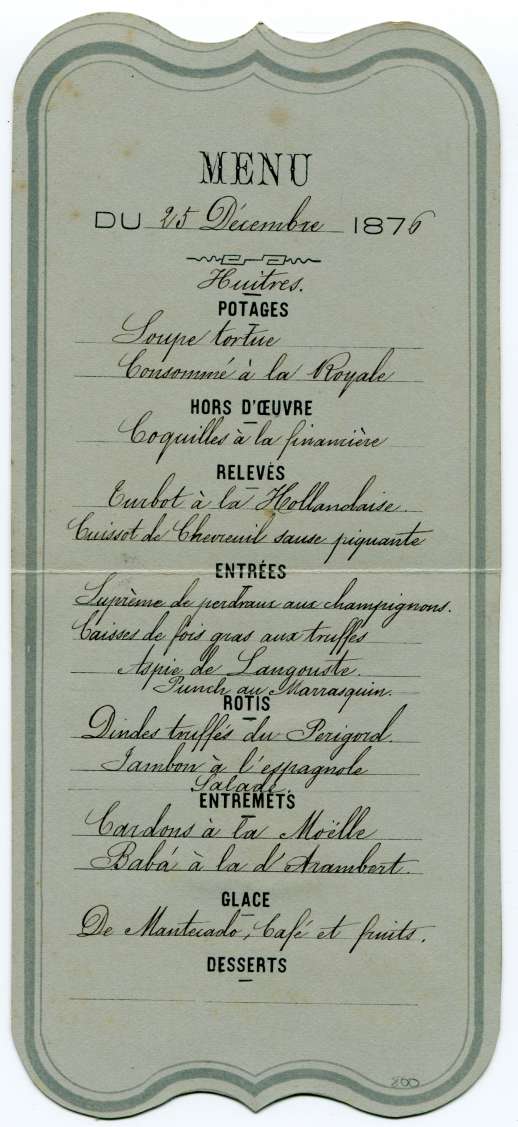 MENU
DU 25 Décembre 1876
Huitres.
POTAGES
Soupe tortue
Consommé à la Royale
HORS D'ŒUVRE
Coquilles à la financière
RELEVÉS
Turbot à la Hollandaise
Cuissot de Chevreuil sause piquante
ENTRÉES
Suprème de perdraux aux champignons.
Caisses de fois gras aux truffes
Aspic de Langouste.
Punch au Marrasquin.
ROTIS
Dindes truffés du Perigord.
Jambon à l'espagnole
Salade.
ENTREMETS
Cardons à la Moëlle
Babá à la d'Arambert.
GLACE
De Mantecado, Café et fruits.
DESSERTS
800